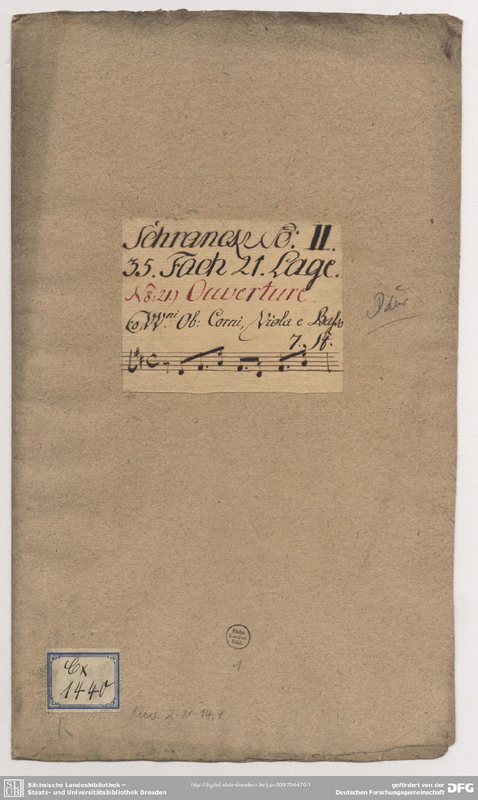 Schranck No: II.
35. Fach 21. Lage.
No: 21.) Ouverture
Co VV.ni Ob: Corni, Viola e Basso
7. St:
D dur
Cx
1440
1
K
Sächsische Landesbibliothek –
Staats- und Universitätsbibliothek Dresden
http://digital.slub-dresden.de/ppn309704470/1
gefördert von der
Deutschen Forschungsgemeinschaft
DFG